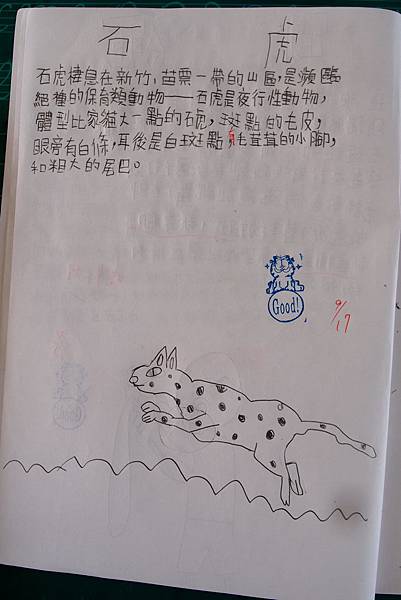 石虎
石虎棲息在新竹，苗票一帶的山區，是瀕臨
絕種的保育類動物──石虎是夜行性動物，
體型比家貓大一點的石虎，斑點的毛皮，
眼旁有白條，耳後是白斑點，毛茸茸的小腳，
和粗大的尾巴。
Good!
9/17